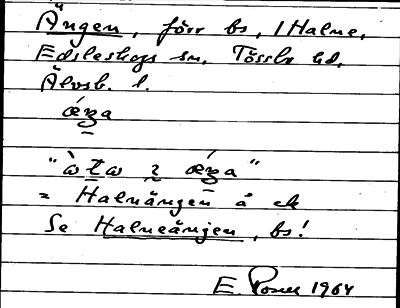 Ängen, förr bs, i Halne,
Edsleskogs sn, Tössbo hd,
Älvsb. l.
ǽŋa
"ὼta ı ǽŋa"
= Halnängen å ek
Se Halneängen, bs!
E. Rosell 1964